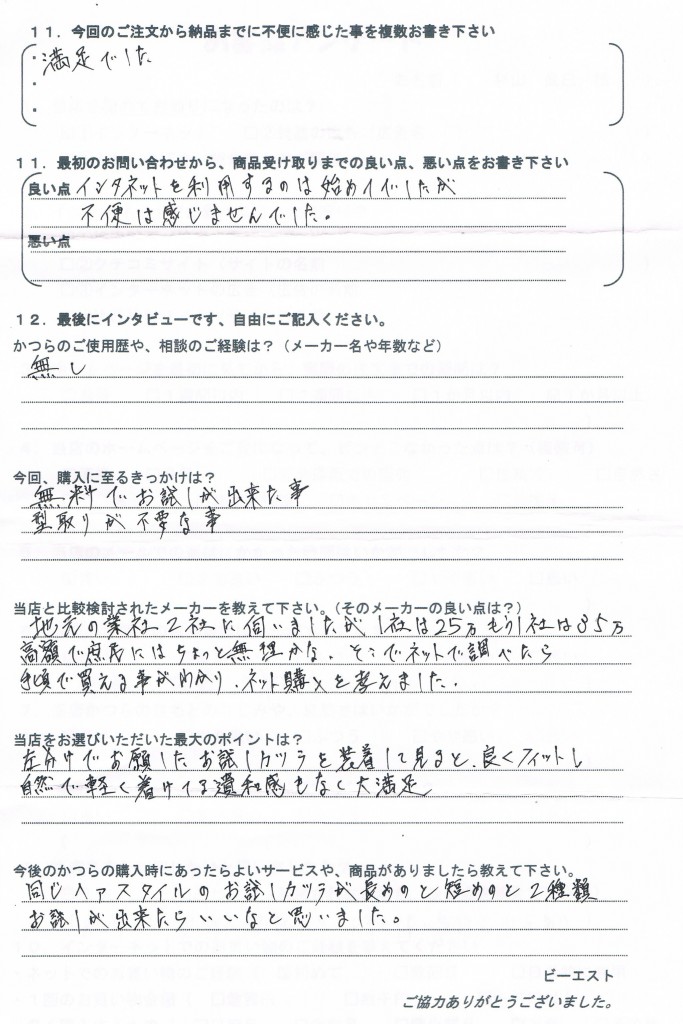 11．今回のご注文から納品までに不便に感じた事を複数お書き下さい
・満足でした
・
・
11．最初のお問い合わせから、商品受け取りまでの良い点、悪い点をお書き下さい
良い点 インタネットを利用するのは始めてでしたが
不便は感じませんでした。
悪い点
12．最後にインタビューです、自由にご記入ください。
かつらのご使用歴や、相談のご経験は？（メーカー名や年数など）
無し
今回、購入に至るきっかけは？
無料でお試しが出来た事
型取りが不要な事
当店と比較検討されたメーカーを教えて下さい。（そのメーカーの良い点は？）
地元の業社2社に伺いましたが1社は25万もう1社は35万
高額で庶民にはちょっと無理かな、そこでネットで調べたら
手頃で買える事がわかり、ネット購入を考えました。
当店をお選びいただいた最大のポイントは？
左分けでお願したお試しカツラを装着して見ると、良くフィットし
自然で軽く着けてる違和感もなく大満足
今後のかつらの購入時にあったらよいサービスや、商品がありましたら教えて下さい。
同じヘアスタイルのお試しカツラが長めのと短めのと2種類
お試しが出来たらいいなと思いました。
ビーエスト
ご協力ありがとうございました。